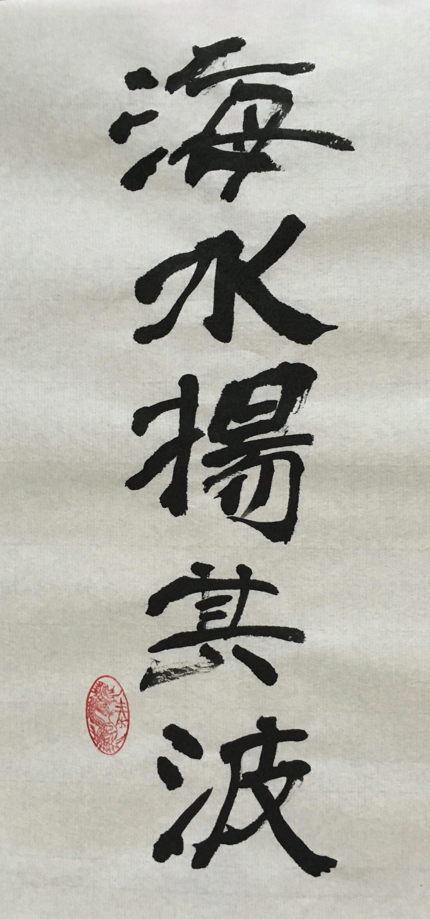 海水揚其波